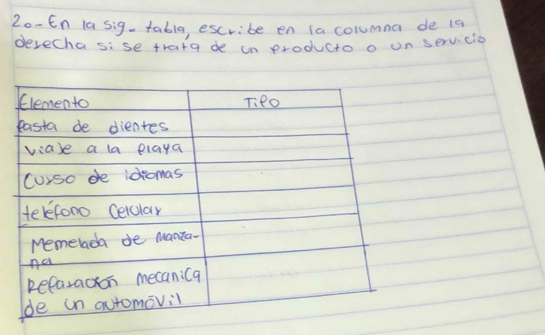 2.- En la sig. tabla, escribe en la columna de la
derecha si se trata de un producto o un servicio
Elemento Tipo
Pasta de dientes
Viaje a la playa
Curso de idiomas
teléfono Celular
Memelada de manza-
na
Reparación mecanica
de un automóvil